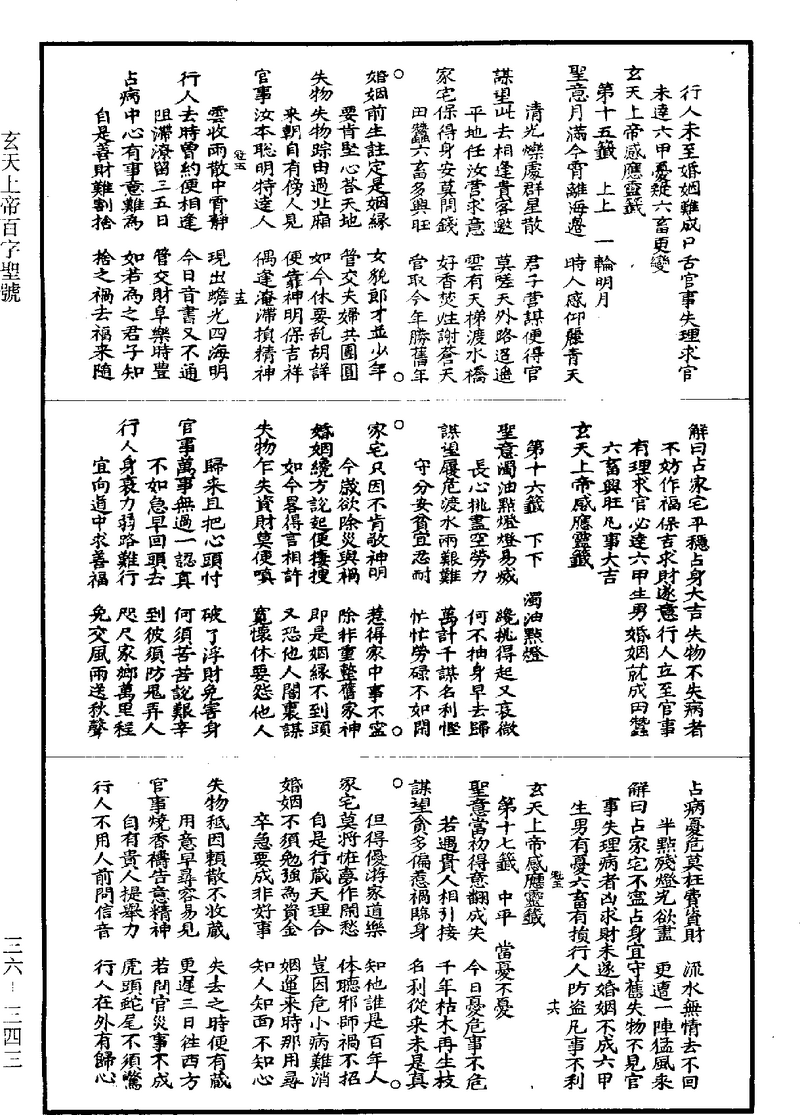 行人未至婚姻難成口舌官事失理求官
未達六甲憂疑六畜更變
玄天上帝感應靈籤
第十五籤　上上　一輪明月
聖意月滿今宵離海邊　時人感仰麗青天
清光爍處群星散　君子營謀便得官
謀望此去相逢貴客邀　莫嗟天外路迢遙
平地任汝營求意　雲有天梯渡水橋
家宅保得身安莫問錢　好香焚炷謝蒼天
田蠶六畜多興旺　管取今年勝舊年
婚姻前生註定是姻緣　女貌郎才並少年
要肯堅心荅天地　管交夫婦共團圓
失物失物踪由過北廂　如今休要亂胡詳
來朝自有傍人見　便靠神明保吉祥
官事汝本聰明特達人　偶逢淹滯損精神
雲收雨散中宵靜　現出蟾光四海明
行人去時曾約便相逢　今日音書又不通
阻滯潦留三五日　管交財阜樂時豐
占病中心有事意難為　如若為之君子知
自是善財難割捨　捨之禍去福來隨
解曰占家宅平穩占身大吉失物不失病者
不妨作福保吉求財遂意行人立至官事
有理求官必達六甲生男婚姻就成田蠶
六畜興旺凡事大吉
玄天上帝感應靈籤
第十六籤　下下　濁油點燈
聖意濁油點燈燈易滅　纔挑得起又衰微
長心挑盡空勞力　何不抽身早去歸
謀望履危渡水兩艱難　萬計千謀名利慳
守分安貧宜忍耐　忙忙勞碌不如閑
家宅只因不肯敬神明　惹得家中事不寧
今歲欲除災與禍　除非重整舊家神
婚姻纔方說起便摟搜　即是姻緣不到頭
如今畧得言相許　又恐他人闇裏謀
失物乍失資財莫便嗔　寬懷休要怨他人
歸來且把心頭忖　破了浮財免害身
官事萬事無過一認真　何須苦苦說艱辛
不如急早回頭去　到彼須防鬼弄人
行人身衰力弱路難行　咫尺家鄉萬里程
宜向道中求善福　免交風雨送秋聲
占病憂危莫枉費貲財　流水無情去不回
半點殘燈光欲盡　更遭一陣猛風來
解曰占家宅不寧占身宜守舊失物不見官
事失理病者凶求財未遂婚姻不成六甲
生男有憂六畜有損行人防盜凡事不利
玄天上帝感應靈籤
第十七籤　中平　當憂不憂
聖意當初得意翻成失　今日憂危事不危
若遇貴人相引接　千年枯木再生枝
謀望貪多偏惹禍臨身　名利從來未是真
但得優游家道樂　知他誰是百年人
家宅莫將怪夢作閑愁　休聽邪師禍不招
自是行藏天理合　豈因危小病難消
婚姻不須勉強為資金　姻運來時那用尋
卒急要成非好事　知人知面不知心
失物秪因賴散不收藏　失去之時便有藏
用意早尋容易見　更遲三日往西方
官事燒香禱告意精神　若問官災事不成
自有貴人提舉力　虎頭蛇尾不須驚
行人不用人前問信音　行人在外有歸心
玄天上帝百字聖號
三六—三四三